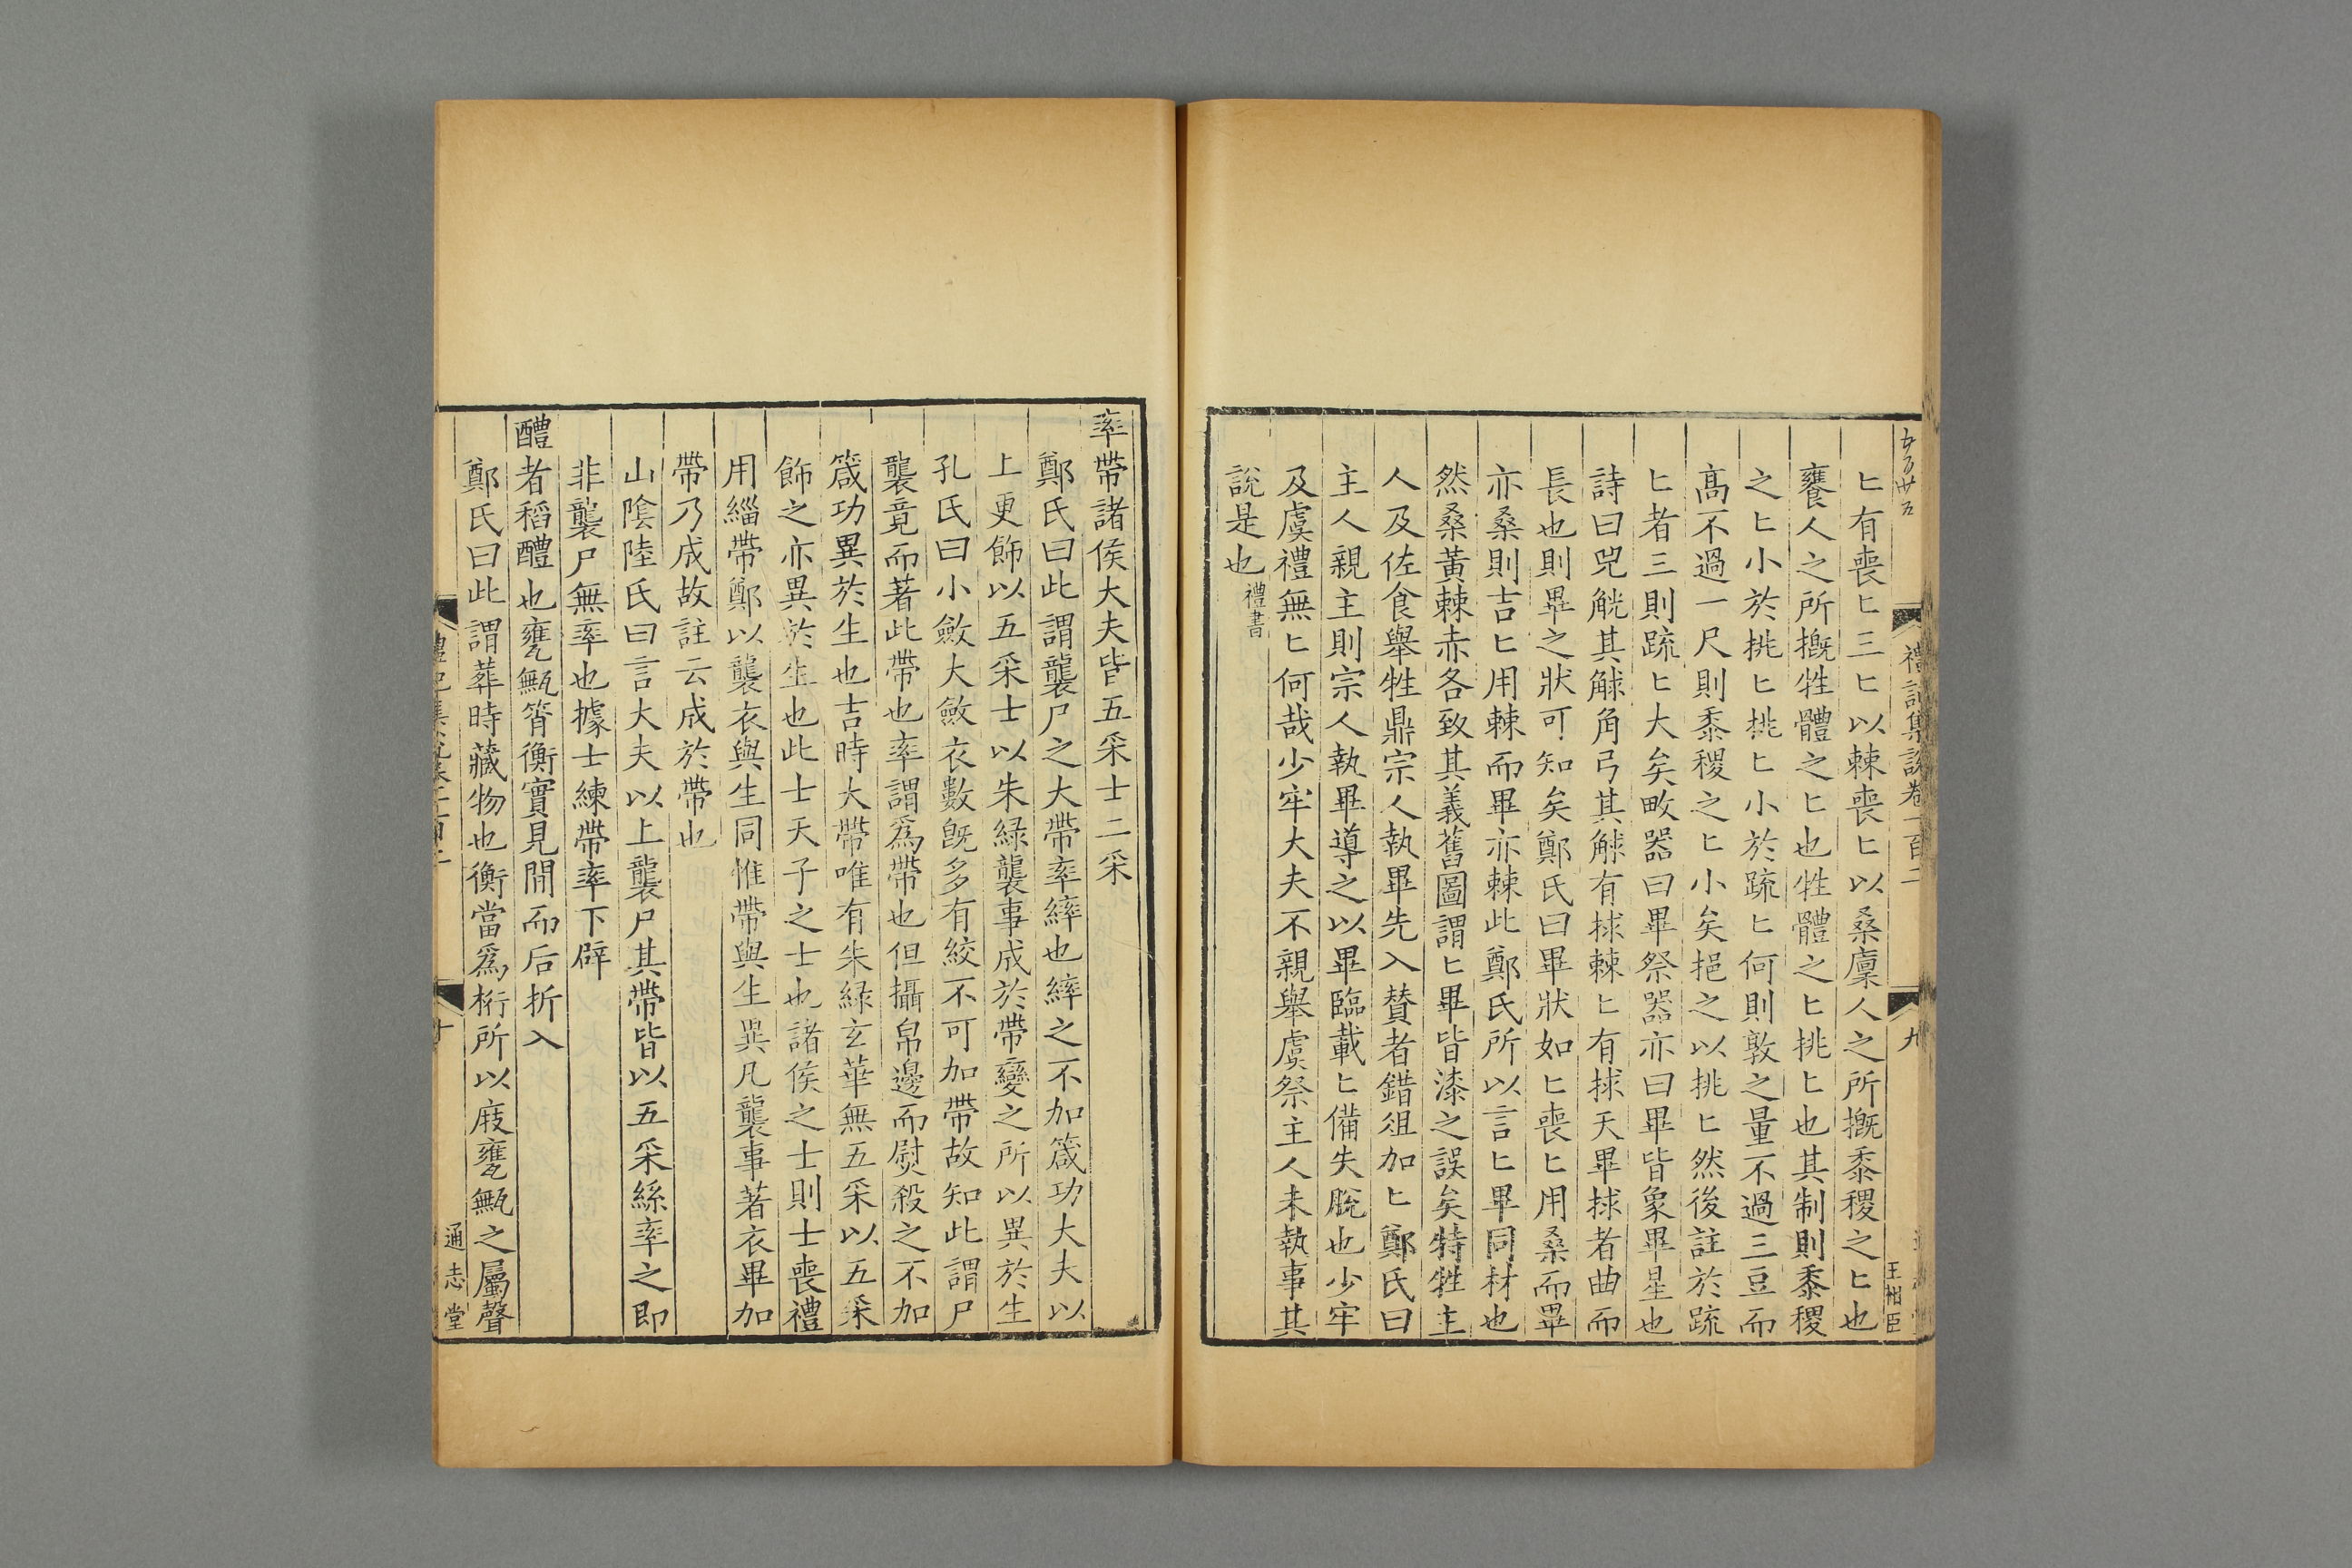 禮記集說卷一百二
九
王相臣
匕有喪匕三匕以棘喪匕以桑廩人之所摡黍稷之匕也
饔人之所摡牲體之匕也牲體之匕挑匕也其制則黍稷
之匕小於挑匕挑匕小於疏匕何則敦之量不過三豆而
高不過一尺則黍稷之匕小矣挹之以挑匕然後註於疏
匕者三則疏匕大矣畋器曰畢祭器亦曰畢皆象畢星也
詩曰兕觥其觩角弓其觩有捄棘匕有捄天畢捄者曲而
長也則畢之狀可知矣鄭氏曰畢狀如匕喪匕用桑而畢
亦桑則吉匕用棘而畢亦棘此鄭氏所以言匕畢同材也
然桑黃棘赤各致其義舊圖謂匕畢皆漆之誤矣特牲主
人及佐食舉牲鼎宗人執畢先入贊者錯俎加匕鄭氏曰
主人親主則宗人執畢導之以畢臨載匕備失脫也少牢
及虞禮無匕何哉少牢大夫不親舉虞祭主人未執事其
說是也禮書
率帶諸侯大夫皆五采士二采
鄭氏曰此謂襲尸之大帶率繂也繂之不加箴功大夫以
上更飾以五采士以朱緑襲事成於帶變之所以異於生
孔氏曰小斂大斂衣數旣多有絞不可加帶故知此謂尸
襲竟而著此帶也率謂爲帶也但攝帛邊而熨殺之不加
箴功異於生也吉時大帶唯有朱緑玄華無五采以五采
飾之亦異於生也此士天子之士也諸侯之士則士喪禮
用緇帶鄭以襲衣與生同惟帶與生異凡襲事著衣畢加
帶乃成故註云成於帶也
山陰陸氏曰言大夫以上襲尸其帶皆以五采絲率之即
非襲尸無率也據士練帶率下辟
醴者稻醴也甕甒筲衡實見間而后折入
鄭氏曰此謂葬時藏物也衡當爲桁所以庪甕甒之屬聲
十
通志堂